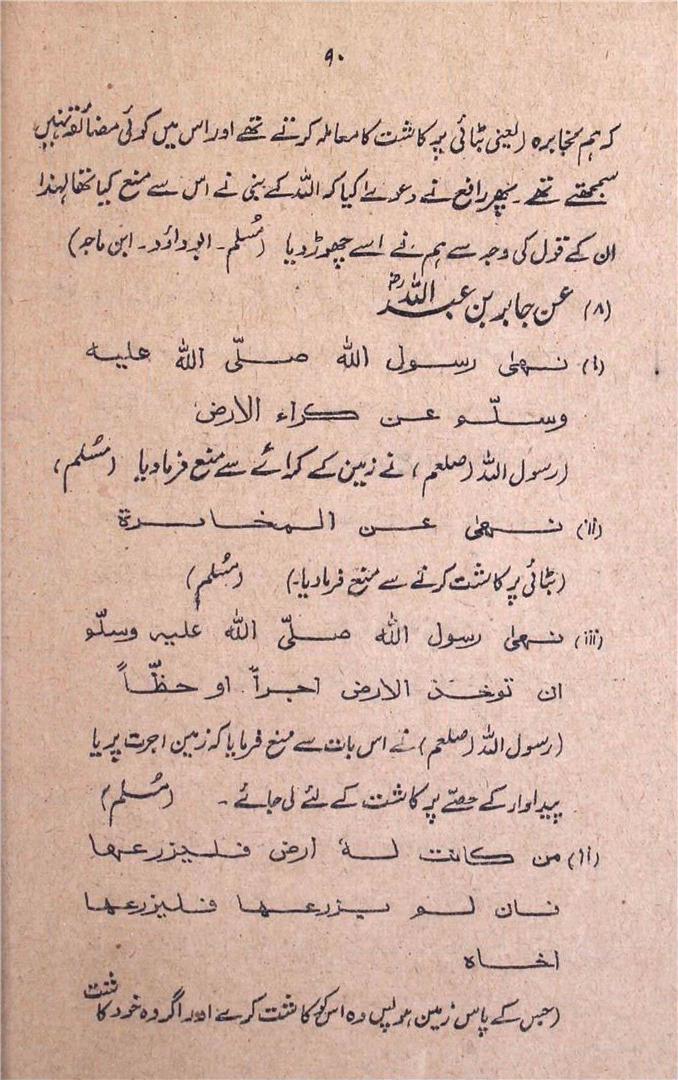 ۹۰
کہ ہم مخابرہ (یعنی بٹائی پر کاشت کا معاملہ کرتے تھے اور اس میں کوئی مضائقہ نہیں
سمجھتے تھے۔ پھر رافع نے دعوےٰ کیا کہ اللہ کے نبی نے اس سے منع کیا تھا لہٰذا
ان کے قول کی وجہ سے ہم نے اسے چھوڑ دیا (مُسلم۔ ابوداؤد۔ ابن ماجہ)
(۸) عن جابر بن عبد اللہؓ
(i) نہیٰ رسول اللہ صلّی اللہ علیہ
وسلّو عن کراء الارض
(رسول اللہ (صلعم) نے زمین کے کرائے سے منع فرمادیا (مُسلم)
(ii) نہیٰ عن المخابرة
(بٹائی پر کاشت کرنے سے منع فرمادیا۔) (مُسلم)
(iii) نہیٰ رسول اللہ صلّی اللہ علیہ وسلّو
ان توخذ الارض اجراً او حظّاً
(رسول اللہ (صلعم) نے اس بات سے منع فرمایا کہ زمین اجرت پر یا
پیداوار کے حصّے پر کاشت کے لئے لی جائے۔ (مُسلم)
(ii) من کانت لہٗ ارض فلیزرعہا
نان لو یزرعہا فلیزرعہا
اخاہ
(جس کے پاس زمین ہو پس وہ اس کو کاشت کرے اور اگر وہ خود کاشت